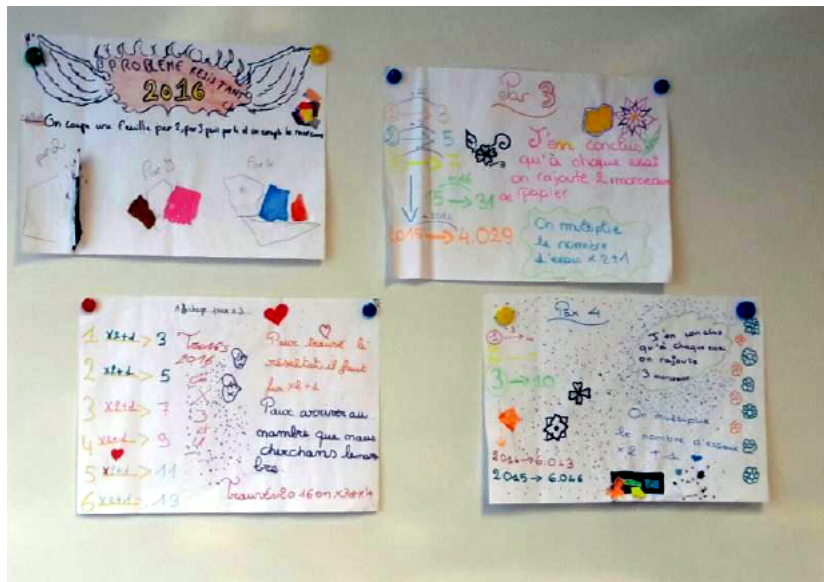 PROBLEME RESISTANT
2016
On coupe une feuille par 2, par 3 puis par 4 et on compte les morceaux
par 2
Par 3
Par 4
Par 3
2 5
3 → 7
15 → 31
→ 4.029
J'en conclus
qu'à chaque essai
on rajoute 2 morceaux
de papier
On multiplie
le nombre
d'essai x2+1
Affichage pour x3
1 x2+1 > 3
2 x2+1 > 5
3 x2+1 > 7
4 x2+1 > 9
5 x2+1 > 11
6 x2+1 > 13
2016
Pour trouvé le
résultat il faut
x2+1
Pour arriver au
nombre que nous
cherchons
Par 4
1 → 4
3 → 10
2014 → 6.043
2015 → 6.046
J'en conclus
qu'à chaque
on rajoute
3 morceaux
On multiplie
le nombre d'essais
x2 + 1